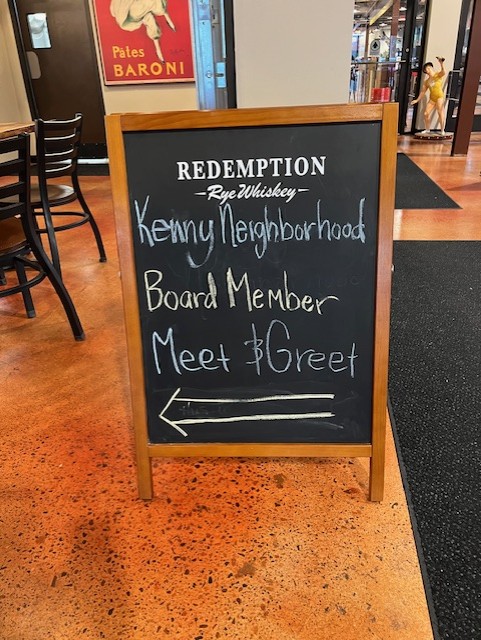 Pâtes
BARONI
REDEMPTION
-Rye Whiskey-
Kenny Neighborhood
Board Member
Meet & Greet